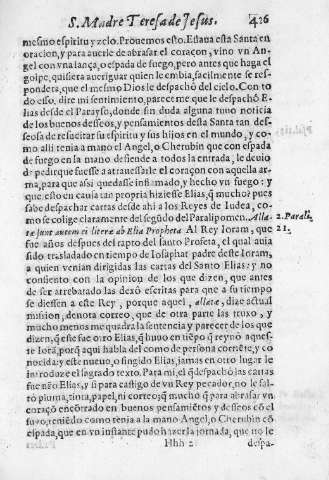 S. Madre Teresa de Iesus. 426
mesmo espiritu y zelo. Prouemos esto. Estaua esta Santa en
oracion, y para auerle de abrasar el coraçon, vino vn An-
gel con vna lança, o espada de fuego, pero antes que haga el
golpe, quisiera aueriguar quien le embia, facilmente se res-
pondera, que el mesmo Dios le despachò del cielo. Con to
do esso, dire mi sentimiento, pareceme que le despachò E-
lias desde el Parayso, donde sin duda alguna tuuo noticia
de los buenos desseos, y pensamientos desta Santa tan des-
seosa de resucitar su espiritu y sus hijos en el mundo, y co-
mo alli tenia a mano el Angel, o Cherubin que con espada
de fuego en la mano defiende a todos la entrada, le deuio
de pedir que fuesse a atrauessarle el coraçon con aquella ar-
ma, para que assi quedasse inflamado, y hecho vn fuego: y
que esto en causa tan propria hiziesse Elias, q̃ mucho? pues
sabe despachar cartas desde ahi a los Reyes de Iudea, co-
mo se colige claramente del segũdo del Paralipomen. Alla-
tæ sunt autem ei literæ ab Elia Propheta Al Rey Ioram, que
fue años despues del rapto del santo Profeta, el qual auia
sido trasladado en tiempo de Iosaphat padre deste Ioram,
a quien venian dirigidas las cartas del Santo Elias: y no
consiento con la opinion de los que dizen, que antes
de ser arrebatado las dexò escritas para que a su tiempo
se diessen a este Rey, porque aquel, allatæ, dize actual
mision, denota correo, que de otra parte las truxo, y
mucho menos me quadra la sentencia y parecer de los que
dizen, q̃ este fue otro Elias, q̃ huuo en tiẽpo q̃ reynò aques-
te Iorã, porq̃ aqui habla del como de persona conocte, y co
nocida: y este nueuo, o fingido Elias, jamas en otro lugar le
introduze el sagrado texto. Para mi, el q̃ despachò las cartas
fue nr̃o Elias, y si para castigo de vn Rey pecador, no le fal-
tò pluma, tinta, papel, ni correo; q̃ mucho q̃ para abrasar vn
coraçõ encõtrado en buenos pensamiẽtos y desseos cõ el
suyo, teniẽdo como tenia a la mano Angel, o Cherubin cõ
espada, que en vn instante pudo hazer la jornada, que no le
Hhh 2 despa-
2. Parali.
21.